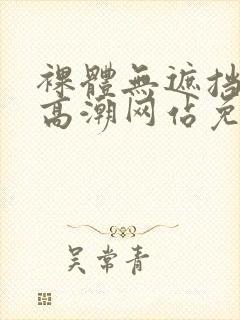 裸體無遮挡
高潮网佔免
吴常青